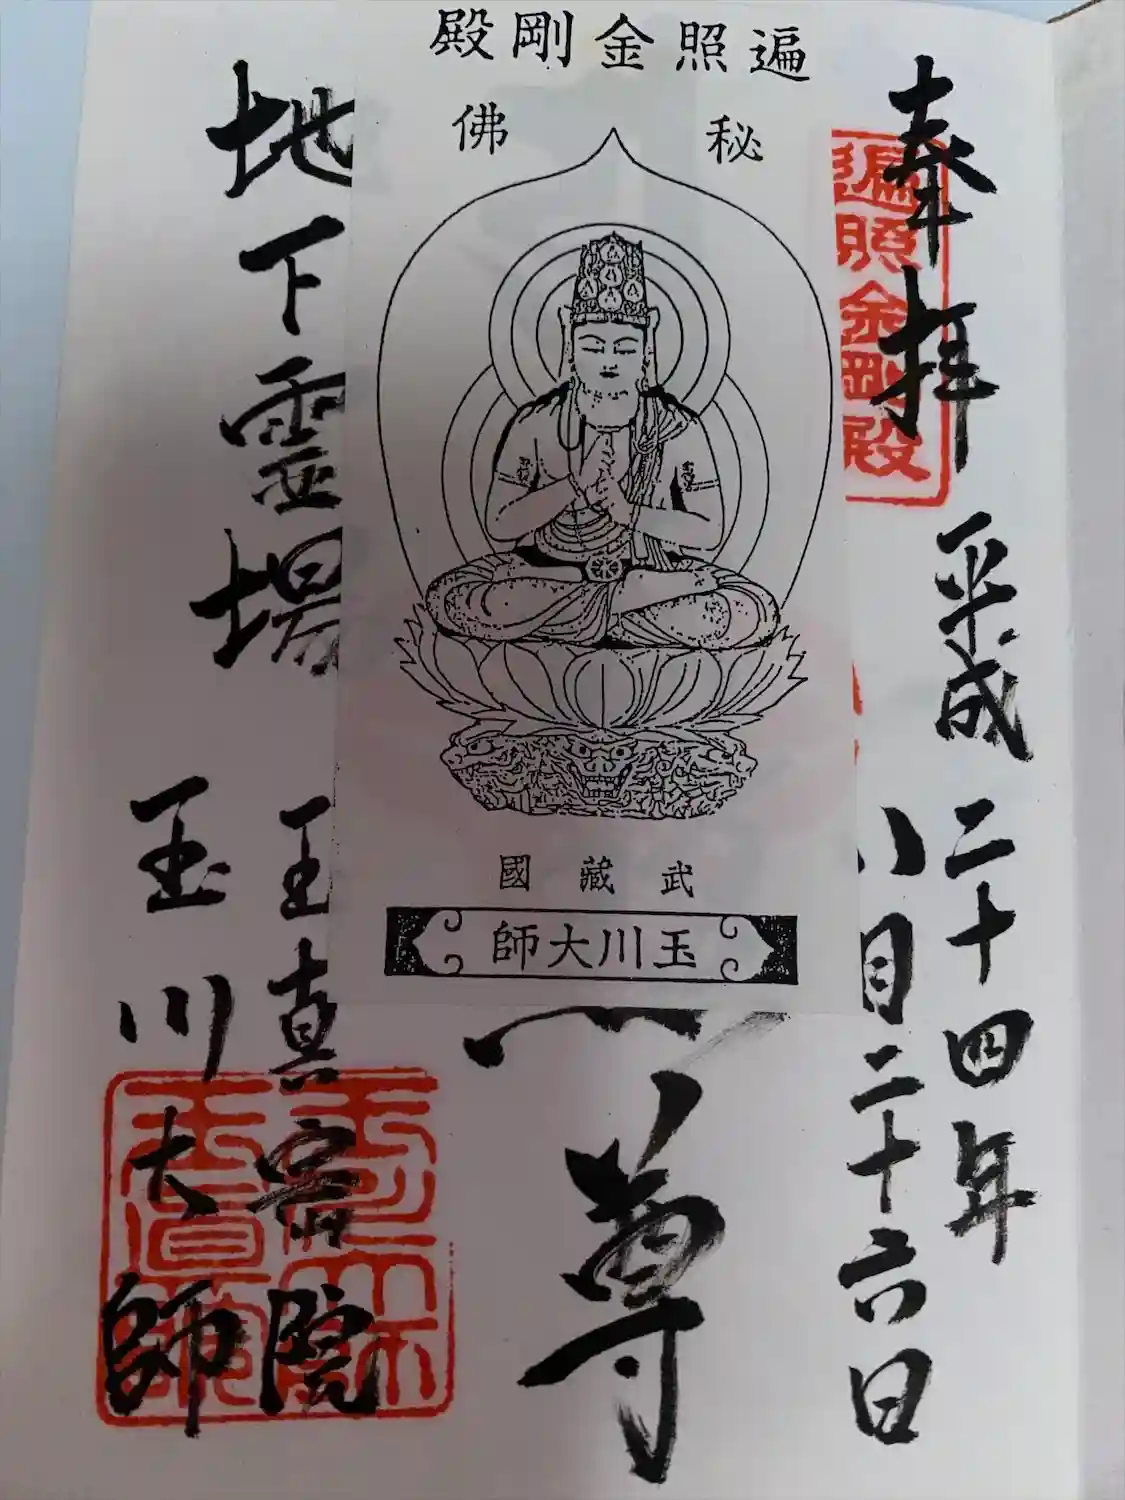 奉拝
平成二十四年
八月二十六日
遍照金剛殿
遍照金剛殿
秘佛
武藏國
玉川大師
尊
地下霊場
玉真密院
玉川大師